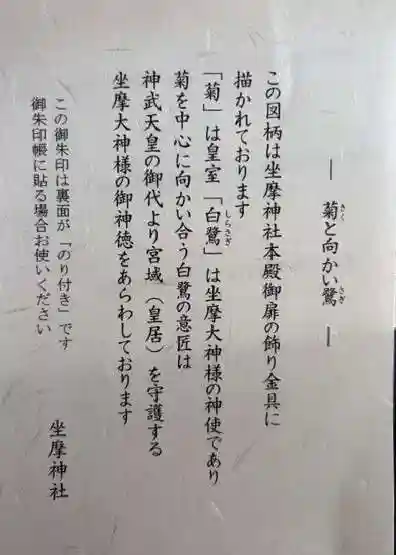 ― 菊と向かい鷺 ―
この図柄は坐摩神社本殿御扉の飾り金具に
描かれております
「菊」は皇室「白鷺」は坐摩大神様の神使であり
菊を中心に向かい合う白鷺の意匠は
神武天皇の御代より宮域（皇居）を守護する
坐摩大神様の御神徳をあらわしております
この御朱印は裏面が「のり付き」です
御朱印帳に貼る場合お使いください
坐摩神社